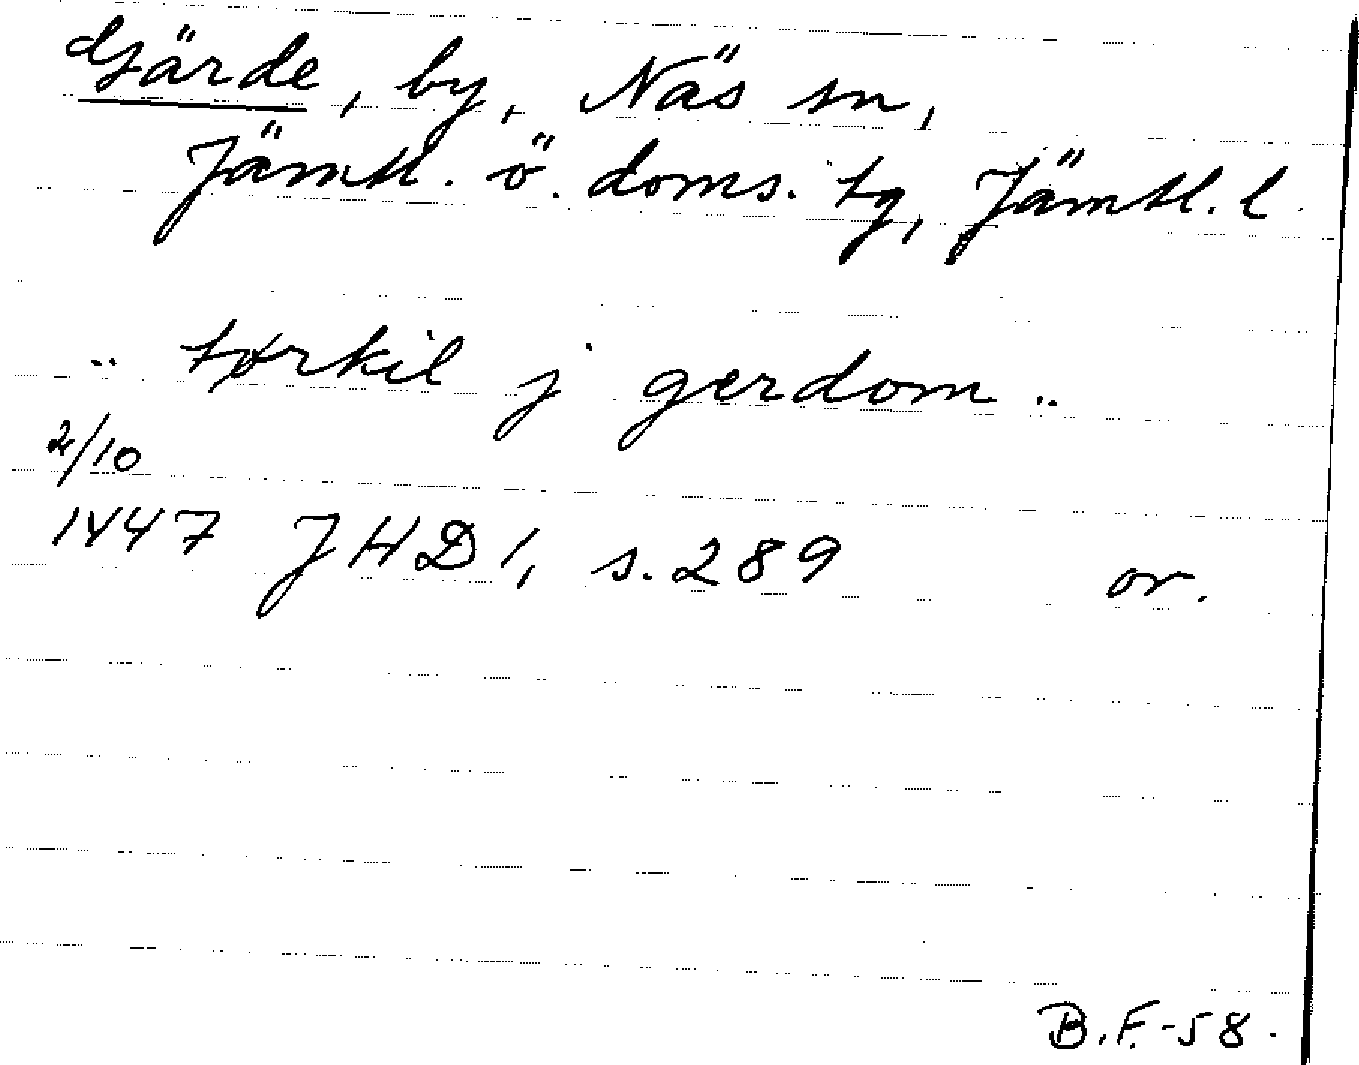 Gärde, by, Näs sn,
Jämtl. ö. doms. tg, Jämtl. l.
.. tørkil j gerdom ..
2/10
1447 JHD 1, s. 289 or.
B.F.-58.